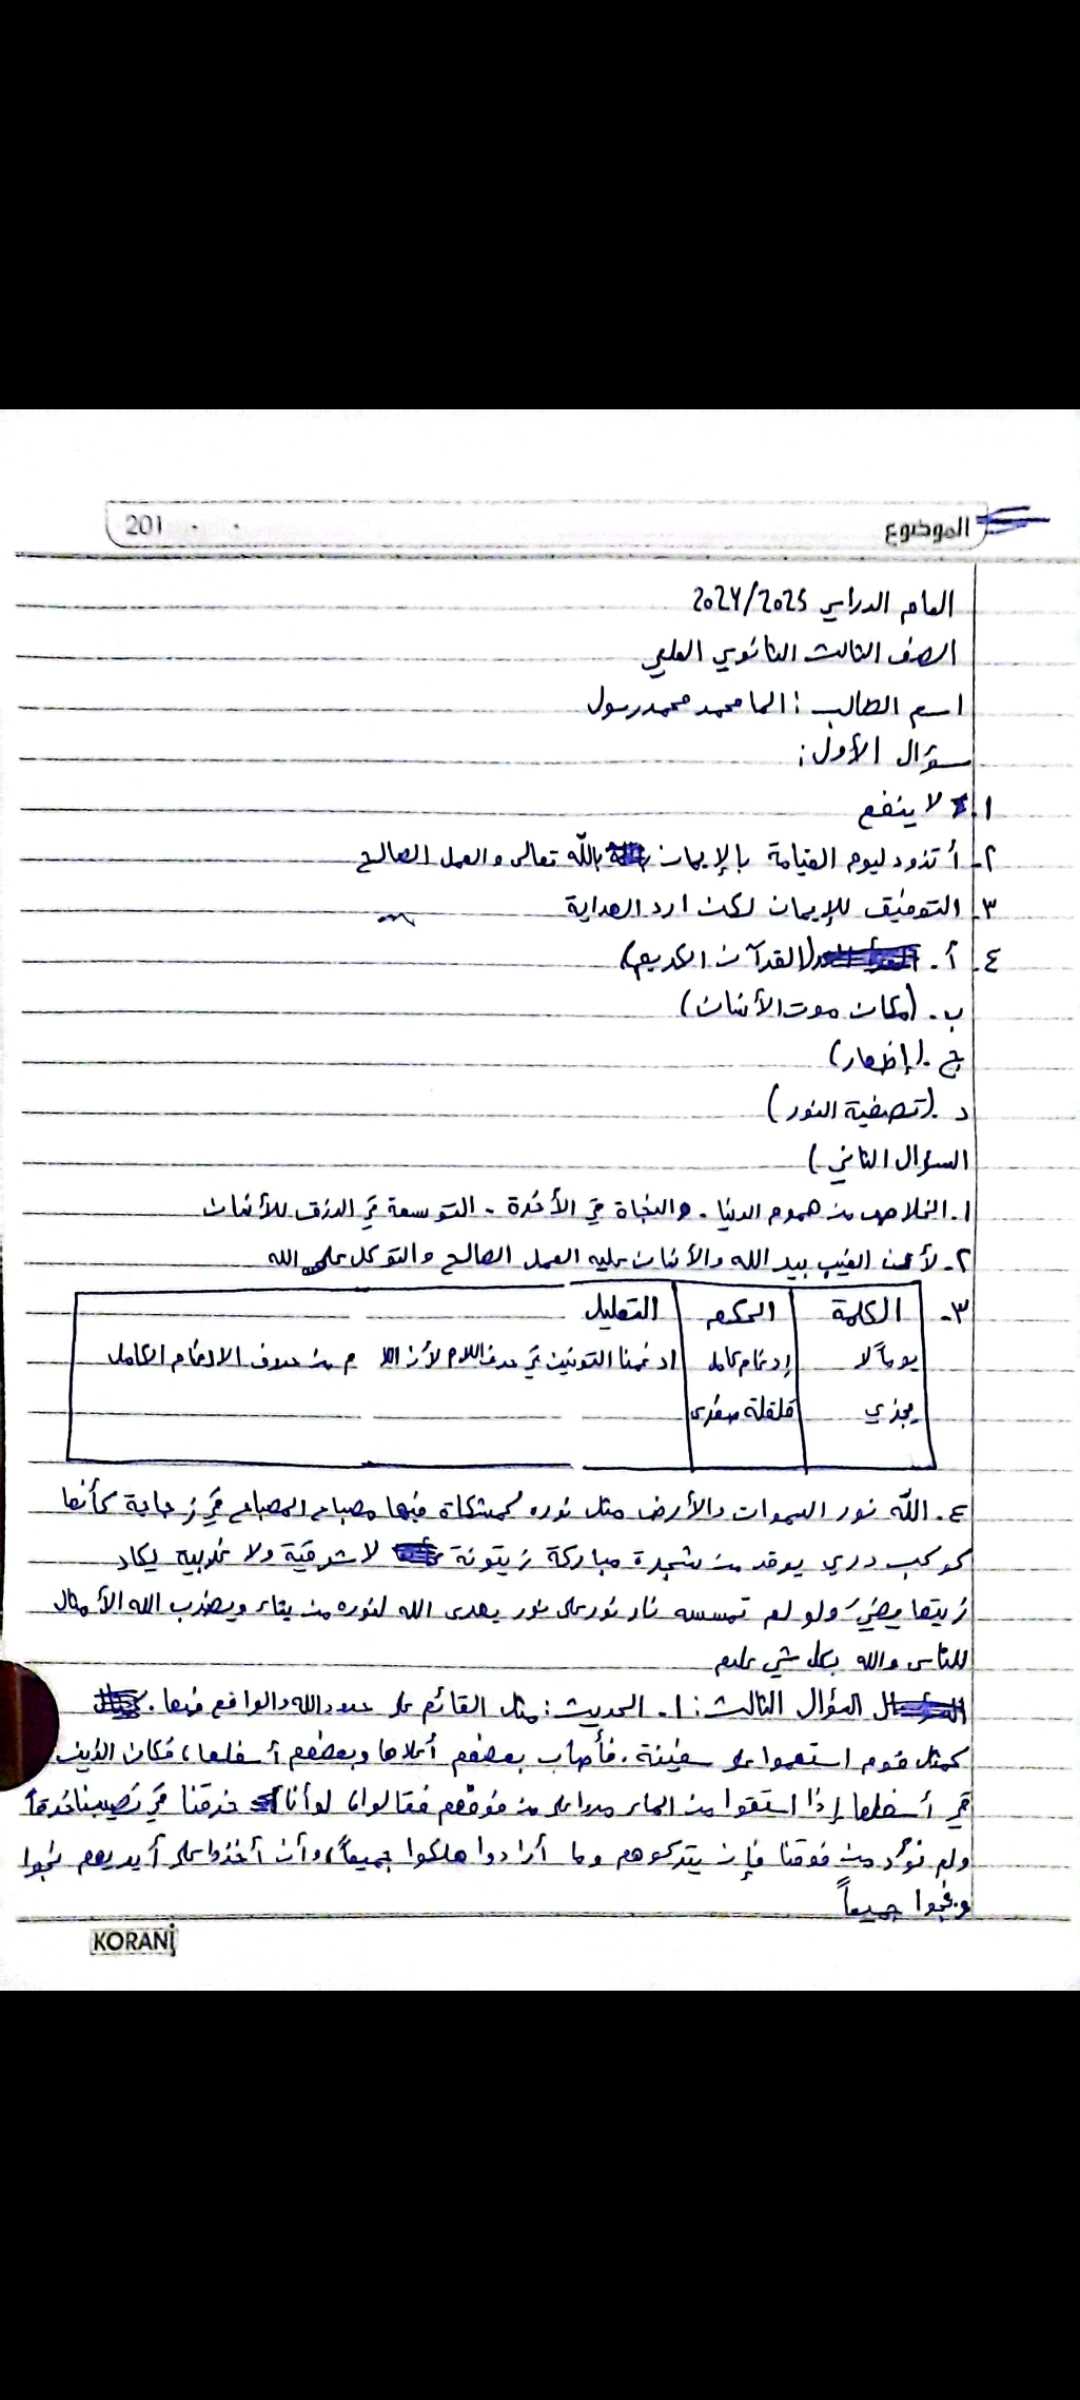 الموضوع 201
العام الدراسي 2024/2025
الصف الثالث الثانوي العلمي
اسم الطالب : الما محمد محمد رسول
سؤال الأول :
١. لا ينفع
٢. أتزود ليوم القيامة بالإيمان بالله تعالى والعمل الصالح
٣. التوفيق للإيمان لكن اراد الهداية
٤. أ. (القرآن الكريم)
ب. (مكان موت الأنسان)
ج. (إظهار)
د. (تصفية النور)
السؤال الثاني )
١. الخلاص من هموم الدنيا . والنجاة في الأخرة - التوسعة في الرزق للأنسان
٢. الغيب بيد الله والأنسان عليه العمل الصالح والتوكل على الله
٣- الكلمة الحكم التعليل
يوماً لا إدغام كامل ادغمنا التونين في حرف اللام لأن م من حروف الادغام الكامل
يجزي قلقلة صغرى
٤. الله نور السموات والأرض مثل نوره كمشكاة فيها مصباح المصباح في زجاجة كأنها
كوكب دري يوقد من شجرة مباركة زيتونة لا شرقية ولا غربيه يكاد
زيتها يضيء ولو لم تمسسه نار نور على نور يهدي الله لنوره من يشاء ويضرب الله الأمثال
للناس والله بكل شي عليم
السؤال الثالث : ١. الحديث : مثل القائم على حدود الله والواقع فيها .
كمثل قوم استهموا على سفينة . فأصاب بعضهم أعلاها وبعضهم أسفلها ، فكان الذين
في أسفلها إذا استقوا من الماء مروا على من فوقهم فقالوا لوأنا خرقنا في نصيبنا خرقاً
ولم نؤذ من فوقنا فإن يتركوهم وما أرادوا هلكوا جميعاً ، وأن أخذوا على أيديهم نجوا
ونجوا جميعاً
KORANI